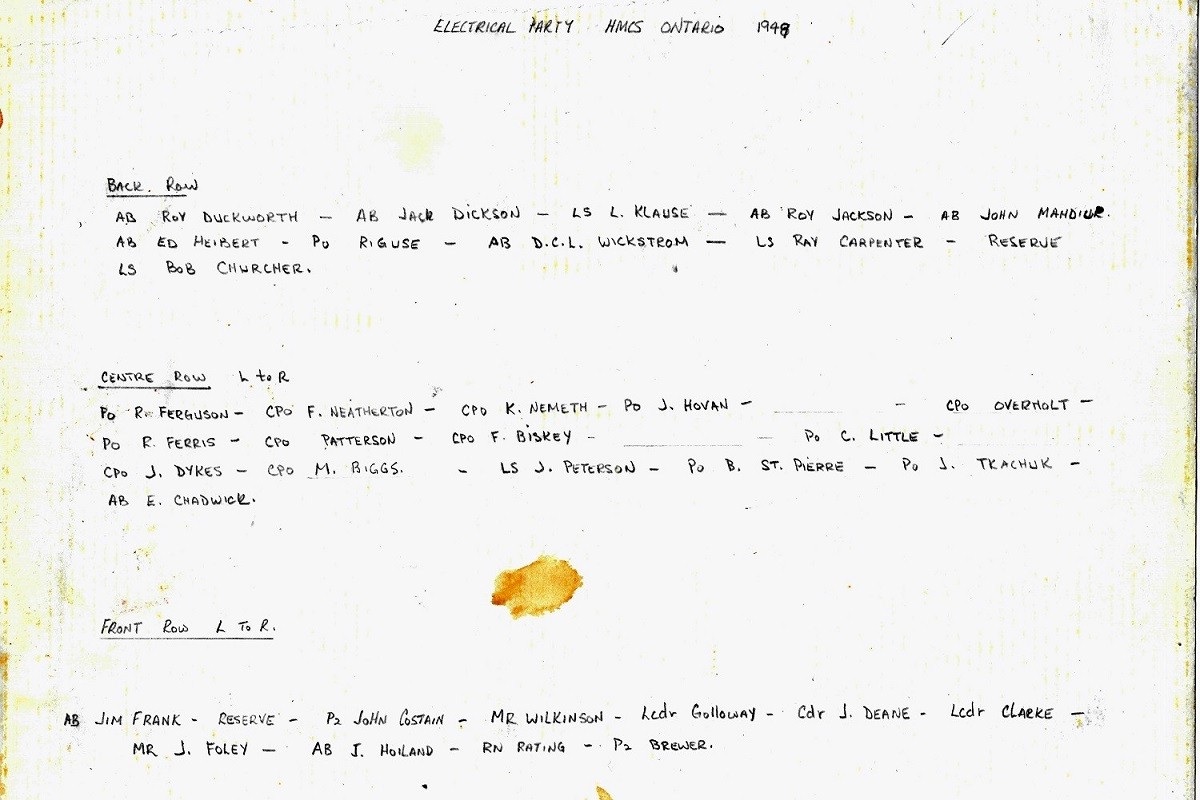 ELECTRICAL PARTY HMCS ONTARIO 1948
BACK. ROW
AB ROY DUCKWORTH — AB JACK DICKSON — LS L. KLAUSE — AB ROY JACKSON — AB JOHN
AB ED HEIBERT - PO RIGUSE — AB D.C.L. WICKSTROM — LS RAY CARPENTER — RESERVE
LS BOB CHURCHER.
CENTRE ROW L to R
PO R. FERGUSON — CPO F. NEATHERTON — CPO K. NEMETH — PO J. HOVAN — — CPO OVERHOLT —
PO R. FERRIS — CPO PATTERSON — CPO F. BISKEY - — PO C. LITTLE —
CPO J. DYKES — CPO M. BIGGS. — LS J. PETERSON — PO B. ST. PIERRE — PO J. TKACHUK —
AB E. CHADWICK.
FRONT ROW L TO R.
AB JIM FRANK - RESERVE - P2 JOHN COSTAIN — MR WILKINSON - Lcdr Golloway - Cdr J. DEANE - Lcdr CLARKE —
MR J. FOLEY — AB I. HOILAND — RN RATING — P2 BREWER.